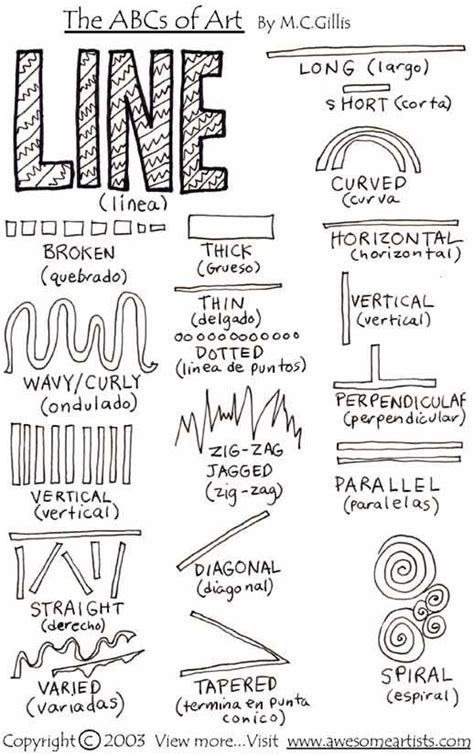 The ABCs of Art By M.C.Gillis
LINE
(línea)
LONG (largo)
SHORT (corta)
CURVED
(curva
BROKEN
(quebrado)
THICK
(Grueso)
HORIZONTAL
(horizontal)
THIN
(delgado)
DOTTED
(línea de puntos)
VERTICAL
(vertical)
WAVY/CURLY
(ondulado)
PERPENDICULAR
(perpendicular)
ZIG-ZAG
JAGGED
(zig-zag)
VERTICAL
(vertical)
PARALLEL
(paralelas)
STRAIGHT
(derecho)
DIAGONAL
(diagonal)
VARIED
(variadas)
TAPERED
(termina en punta
conico)
SPIRAL
(espiral)
Copyright © 2003 View more...Visit www.awesomeartists.com